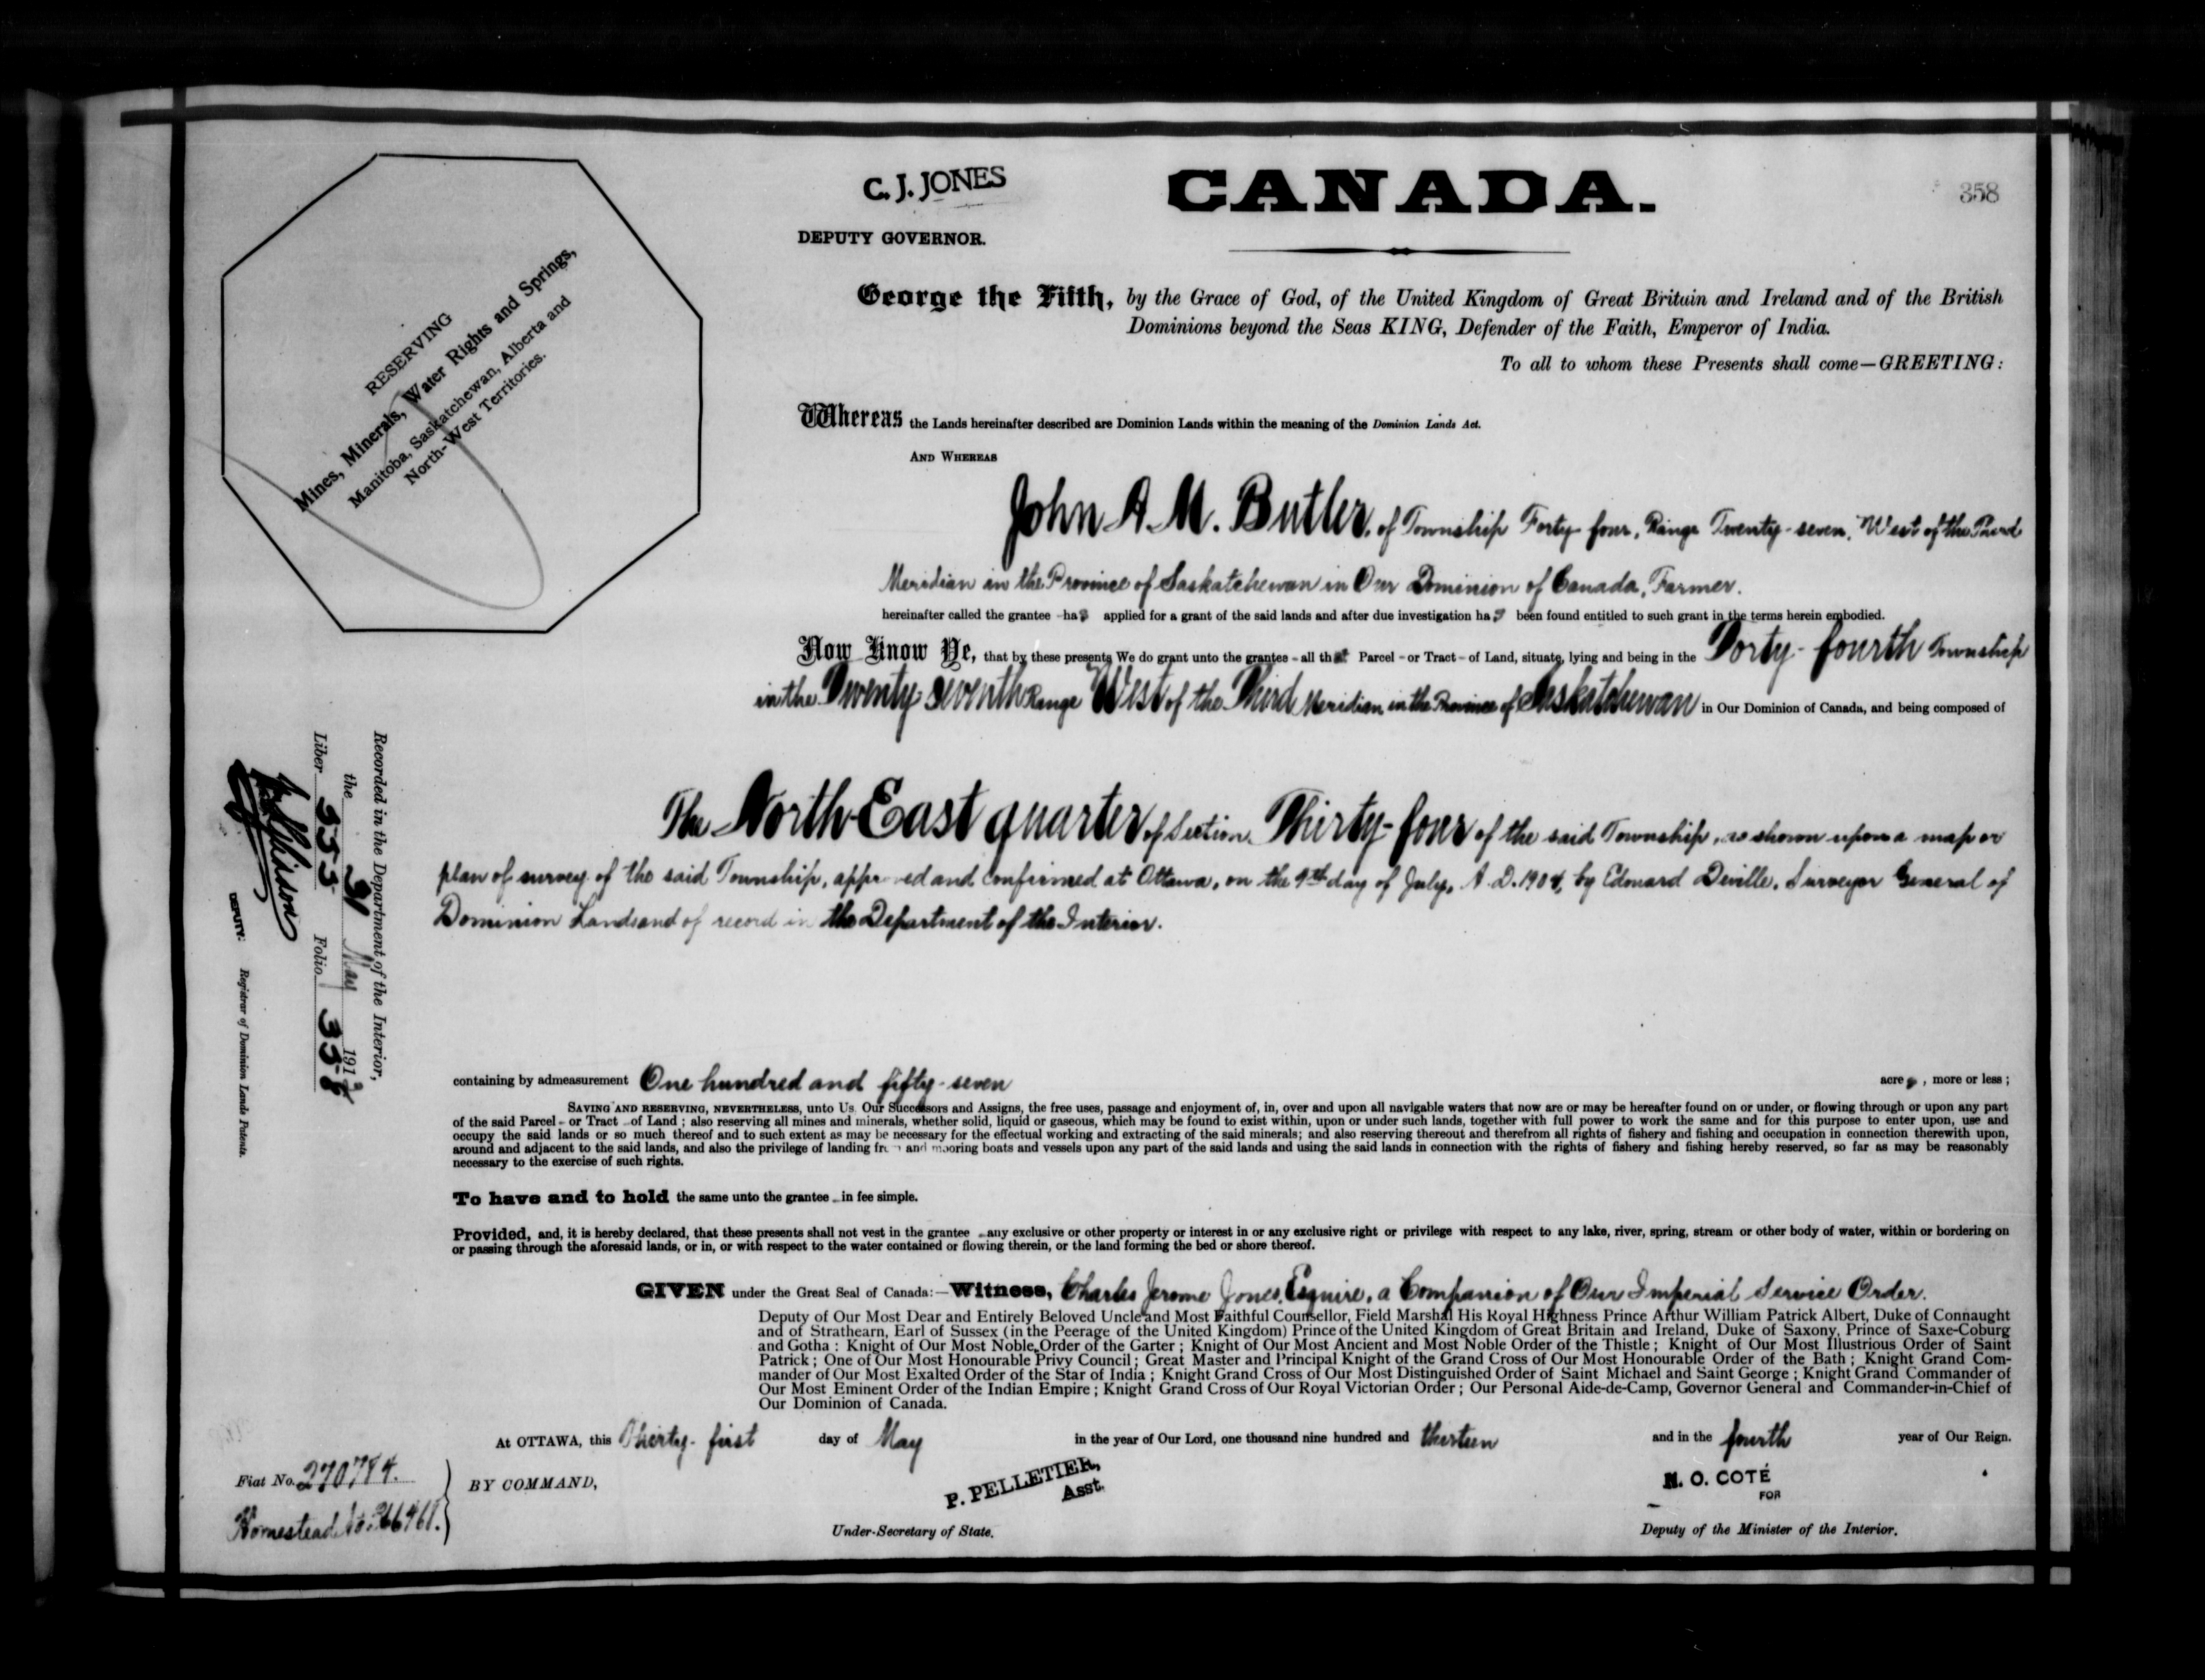 C. J. JONES
DEPUTY GOVERNOR.
CANADA.
358
RESERVING
Mines, Minerals, Water Rights and Springs,
Manitoba, Saskatchewan, Alberta and
North-West Territories.
George the Fifth, by the Grace of God, of the United Kingdom of Great Britain and Ireland and of the British
Dominions beyond the Seas KING, Defender of the Faith, Emperor of India.
To all to whom these Presents shall come—GREETING:
Whereas the Lands hereinafter described are Dominion Lands within the meaning of the Dominion Lands Act.
AND WHEREAS
John A. M. Butler, of Township Forty-four, Range Twenty-seven, West of the Third
Meridian in the Province of Saskatchewan in Our Dominion of Canada, Farmer.
hereinafter called the grantee - has applied for a grant of the said lands and after due investigation has been found entitled to such grant in the terms herein embodied.
Now Know Ye, that by these presents We do grant unto the grantee - all that Parcel - or Tract - of Land, situate, lying and being in the Forty-fourth Township
in the Twenty-seventh Range West of the Third Meridian in the Province of Saskatchewan in Our Dominion of Canada, and being composed of
The North-East quarter of Section Thirty-four of the said Township, as shown upon a map or
plan of survey of the said Township, approved and confirmed at Ottawa, on the 9th day of July, A.D. 1904, by Edouard Deville, Surveyor General of
Dominion Lands and of record in the Department of the Interior.
Recorded in the Department of the Interior,
the 31 May 1913
Liber 355 Folio 358
DEPUTY. Registrar of Dominion Lands Patents.
containing by admeasurement One hundred and fifty-seven acres, more or less;
SAVING AND RESERVING, NEVERTHELESS, unto Us Our Successors and Assigns, the free uses, passage and enjoyment of, in, over and upon all navigable waters that now are or may be hereafter found on or under, or flowing through or upon any part
of the said Parcel - or Tract - of Land; also reserving all mines and minerals, whether solid, liquid or gaseous, which may be found to exist within, upon or under such lands, together with full power to work the same and for this purpose to enter upon, use and
occupy the said lands or so much thereof and to such extent as may be necessary for the effectual working and extracting of the said minerals; and also reserving thereout and therefrom all rights of fishery and fishing and occupation in connection therewith upon,
around and adjacent to the said lands, and also the privilege of landing from and mooring boats and vessels upon any part of the said lands and using the said lands in connection with the rights of fishery and fishing hereby reserved, so far as may be reasonably
necessary to the exercise of such rights.
To have and to hold the same unto the grantee - in fee simple.
Provided, and, it is hereby declared, that these presents shall not vest in the grantee - any exclusive or other property or interest in or any exclusive right or privilege with respect to any lake, river, spring, stream or other body of water, within or bordering on
or passing through the aforesaid lands, or in, or with respect to the water contained or flowing therein, or the land forming the bed or shore thereof.
GIVEN under the Great Seal of Canada:—Witness, Charles Jerome Jones, Esquire, a Companion of Our Imperial Service Order.
Deputy of Our Most Dear and Entirely Beloved Uncle and Most Faithful Counsellor, Field Marshal His Royal Highness Prince Arthur William Patrick Albert, Duke of Connaught
and of Strathearn, Earl of Sussex (in the Peerage of the United Kingdom) Prince of the United Kingdom of Great Britain and Ireland, Duke of Saxony, Prince of Saxe-Coburg
and Gotha: Knight of Our Most Noble Order of the Garter; Knight of Our Most Ancient and Most Noble Order of the Thistle; Knight of Our Most Illustrious Order of Saint
Patrick; One of Our Most Honourable Privy Council; Great Master and Principal Knight of the Grand Cross of Our Most Honourable Order of the Bath; Knight Grand Com-
mander of Our Most Exalted Order of the Star of India; Knight Grand Cross of Our Most Distinguished Order of Saint Michael and Saint George; Knight Grand Commander of
Our Most Eminent Order of the Indian Empire; Knight Grand Cross of Our Royal Victorian Order; Our Personal Aide-de-Camp, Governor General and Commander-in-Chief of
Our Dominion of Canada.
At OTTAWA, this Thirty-first day of May in the year of Our Lord, one thousand nine hundred and thirteen and in the fourth year of Our Reign.
Fiat No. 270784.
Homestead No.
BY COMMAND,
P. PELLETIER,
Asst.
Under-Secretary of State.
N. O. COTÉ
FOR
Deputy of the Minister of the Interior.